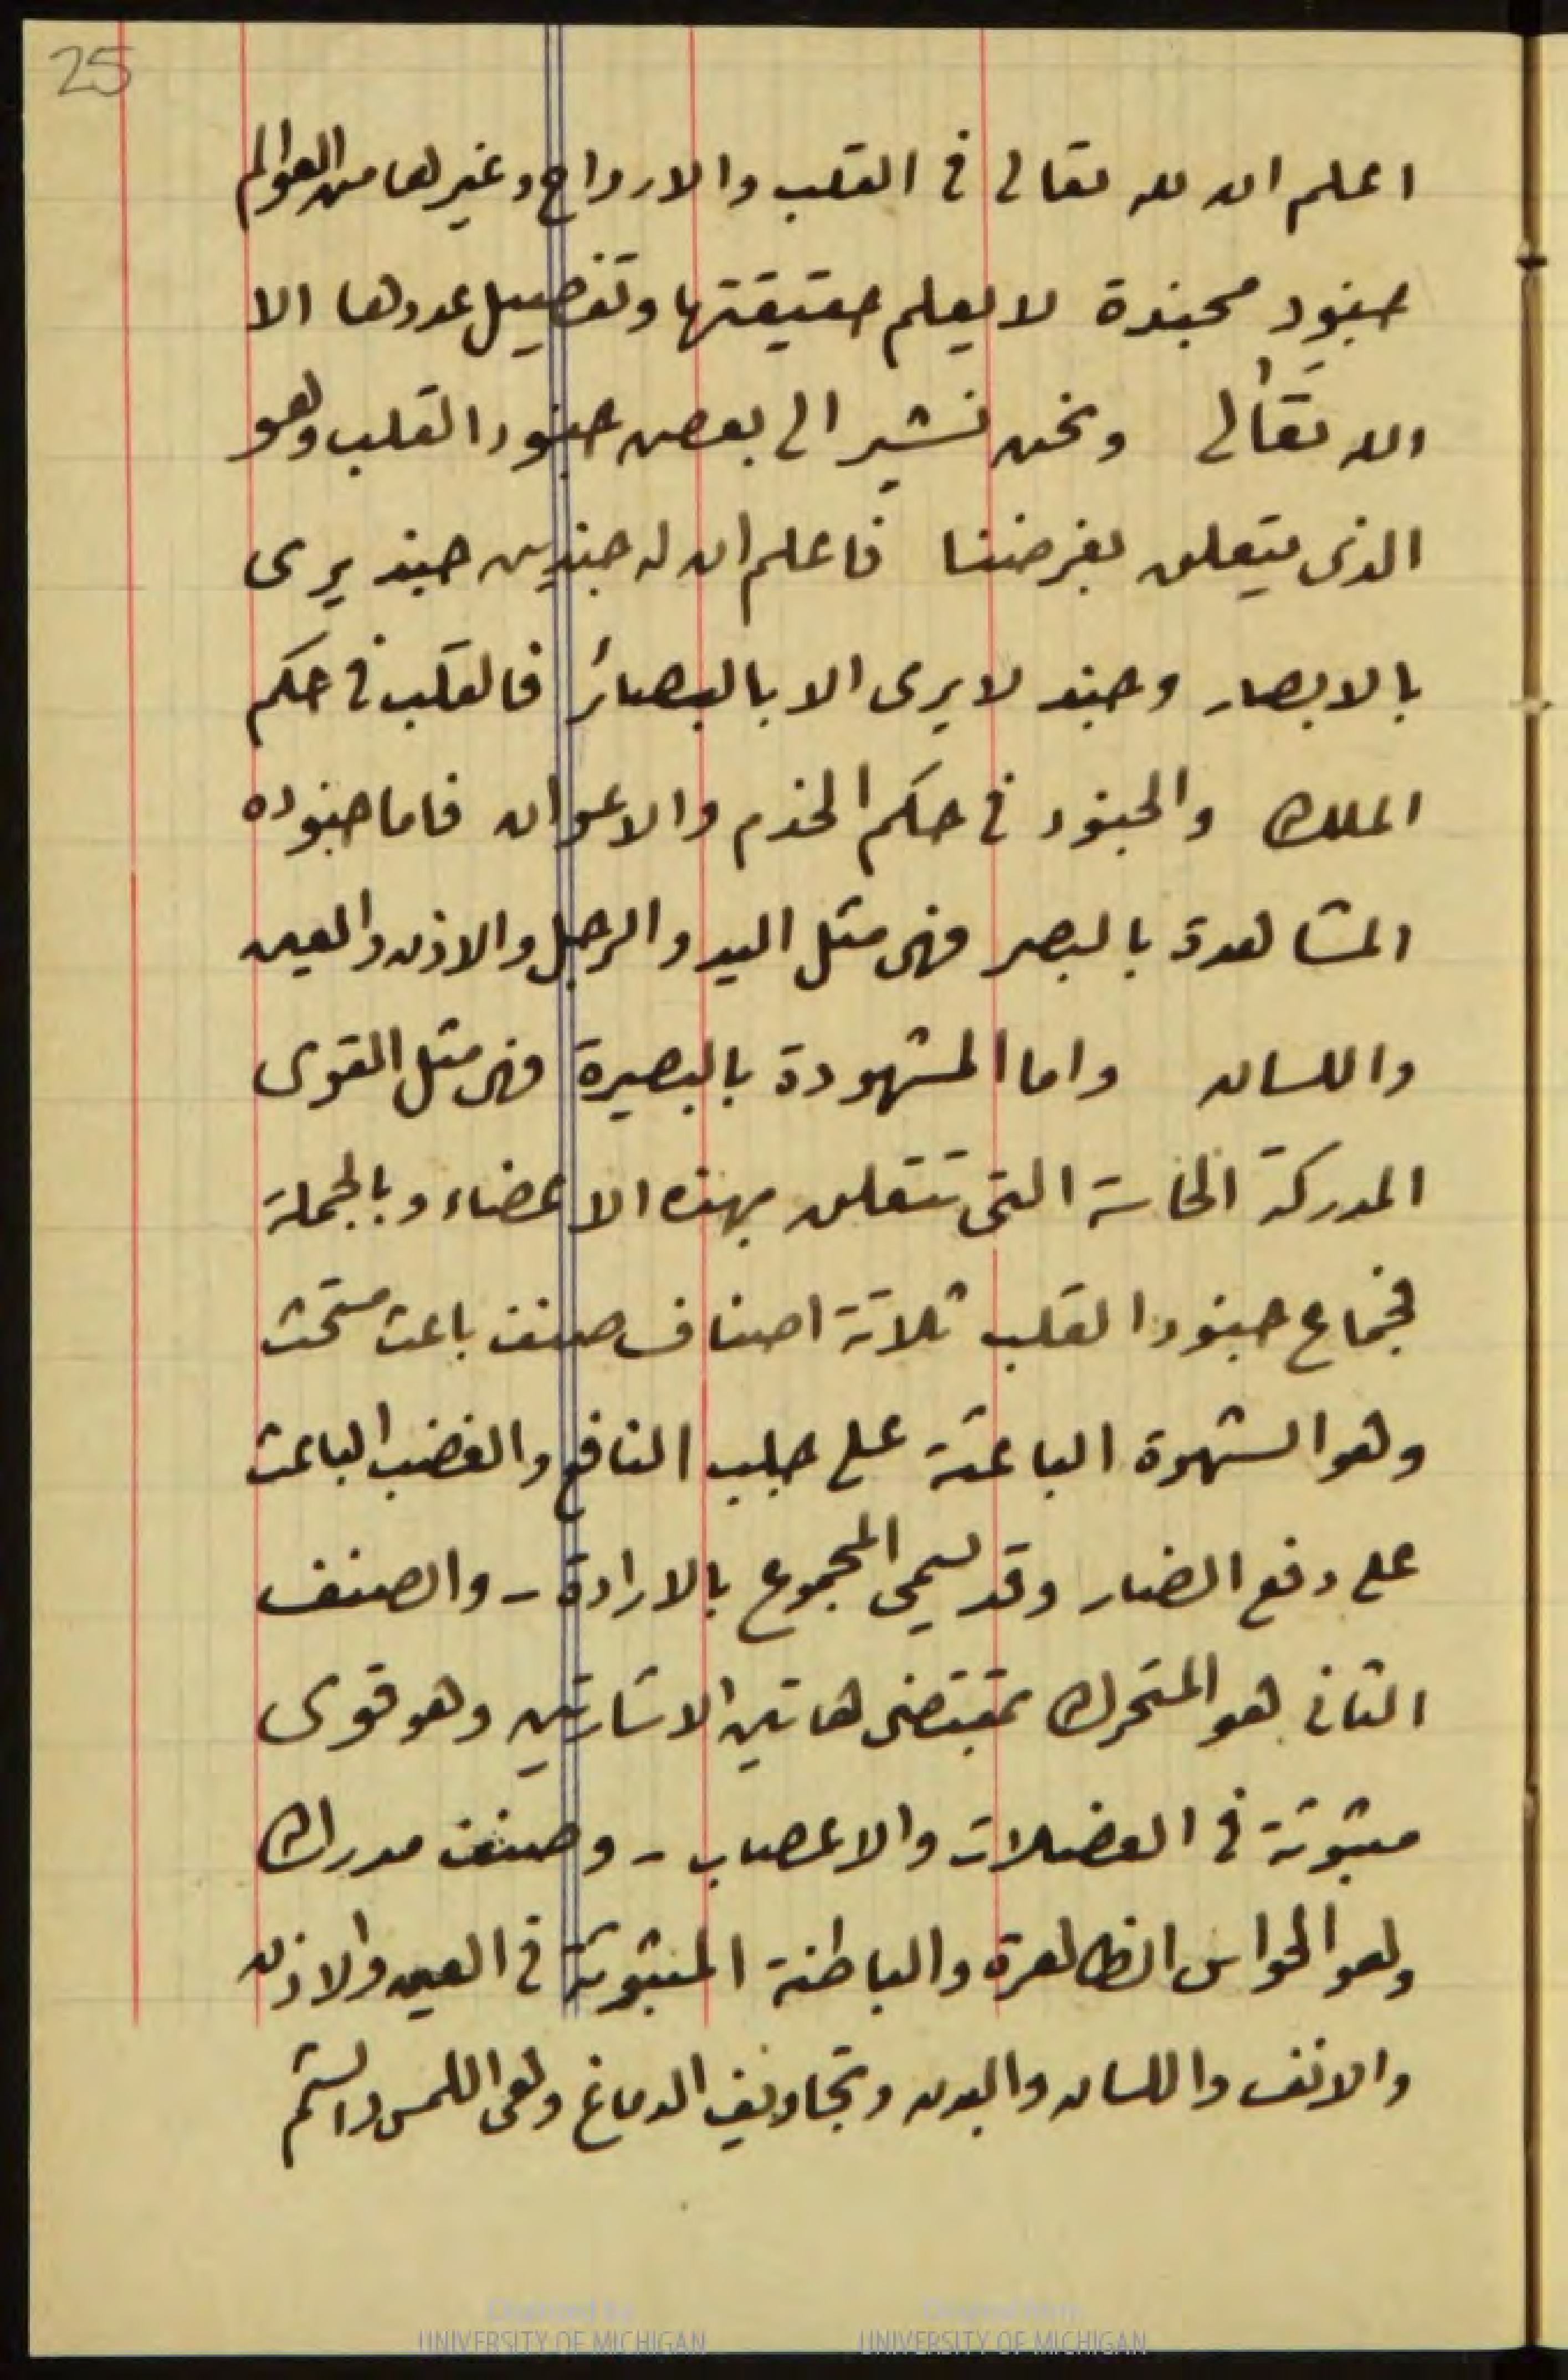 25
اعلم ان لله تعالى في القلب والارواح وغيرها من العوالم
جنود مجندة لا يعلم حقيقتها وتفصيل عددها الا
الله تعالى ونحن نشير الى بعض جنود القلب وهو
الذى يتعلق بغرضنا فاعلم ان له جندين جند يرى
بالابصار وجند لا يرى الا بالبصائر فالقلب في حكم
الملك والجنود في حكم الخدم والاعوان فاما جنوده
المشاهدة بالبصر فهى مثل اليد والرجل والاذن والعين
واللسان واما المشهودة بالبصيرة فهى مثل القوى
المدركة الخاسة التى تتعلق بهذه الاعضاء وبالجملة
فجماع جنود القلب ثلاثة اصناف صنف باعث مستحث
وهو الشهوة الباعثة على جلب النافع والغضب الباعث
على دفع الضار وقد يسمى المجموع بالارادة - والصنف
الثانى هو المتحرك بمقتضى هاتين الاشارتين وهو قوى
مبثوثة في العضلات والاعصاب - وصنف مدراك
وهو الحواس الظاهرة والباطنة المبثوثة في العين والاذن
والانف واللسان والبدن وتجاويف الدماغ وهى اللمس والشم
Digitized by
UNIVERSITY OF MICHIGAN
Original from
UNIVERSITY OF MICHIGAN